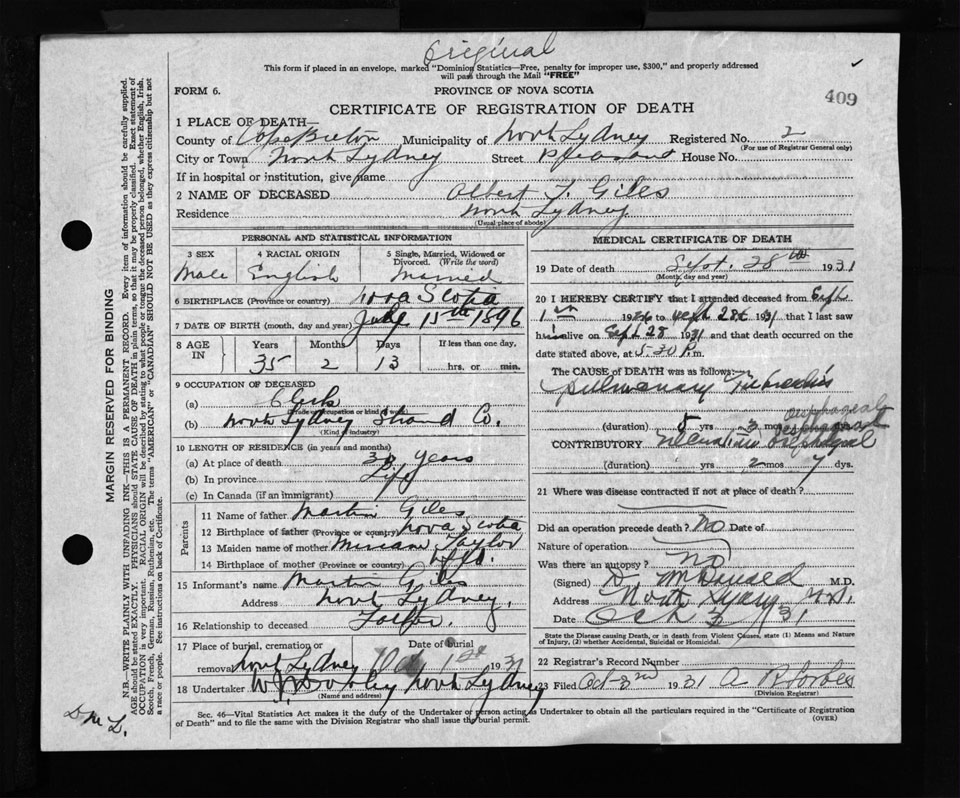 Original
This form if placed in an envelope, marked "Dominion Statistics—Free, penalty for improper use, $300," and properly addressed
will pass through the Mail "FREE"
FORM 6.
PROVINCE OF NOVA SCOTIA
409
CERTIFICATE OF REGISTRATION OF DEATH
1 PLACE OF DEATH—
County of Cape Breton Municipality of North Sydney Registered No. 2
(For use of Registrar General only)
City or Town North Sydney Street Pleasant House No.
If in hospital or institution, give name
2 NAME OF DECEASED Albert J. Giles
Residence North Sydney
(Usual place of abode)
PERSONAL AND STATISTICAL INFORMATION
3 SEX 4 RACIAL ORIGIN 5 Single, Married, Widowed or
Divorced. (Write the word)
Male English Married
6 BIRTHPLACE (Province or country) Nova Scotia
7 DATE OF BIRTH (month, day and year) July 15th 1896
8 AGE IN Years Months Days If less than one day,
35 2 13 hrs. or min.
9 OCCUPATION OF DECEASED
(a) Clerk
(Trade, occupation or kind of work)
(b) North Sydney Strand Co.
(Kind of industry)
10 LENGTH OF RESIDENCE (in years and months)
(a) At place of death years
(b) In province Life
(c) In Canada (if an immigrant)
Parents
11 Name of father Martin Giles
12 Birthplace of father (Province or country) Nova Scotia
13 Maiden name of mother Miriam Taylor
14 Birthplace of mother (Province or country) Nfld.
15 Informant's name Martin Giles
Address North Sydney.
16 Relationship to deceased Father.
17 Place of burial, cremation or Date of burial
removal North Sydney Oct 1st 1931
18 Undertaker North Sydney
(Name and address)
MEDICAL CERTIFICATE OF DEATH
19 Date of death Sept. 28th 1931
(Month, day and year)
20 I HEREBY CERTIFY that I attended deceased from Sept
1st 1926 to Sept 28th 1931 that I last saw
him alive on Sept 28 1931 and that death occurred on the
date stated above, at 5.30 P. m.
The CAUSE of DEATH was as follows:
Pulmonary Tuberculosis
(duration) 5 yrs 3 mos
oesophageal
CONTRIBUTORY Ulceration
(duration) yrs 2 mos 7 dys.
21 Where was disease contracted if not at place of death?
Did an operation precede death? No Date of
Nature of operation
Was there an autopsy? No
(Signed) M.D.
Address North Sydney N.S.
Date Oct 31
State the Disease causing Death, or in death from Violent Causes, state (1) Means and Nature
of Injury, (2) whether Accidental, Suicidal or Homicidal.
22 Registrar's Record Number
23 Filed Oct 3rd 1931 A R Forbes
(Division Registrar)
Sec. 46—Vital Statistics Act makes it the duty of the Undertaker or person acting as Undertaker to obtain all the particulars required in the "Certificate of Registration
of Death" and to file the same with the Division Registrar who shall issue the burial permit.
(OVER)
MARGIN RESERVED FOR BINDING
N.B.—WRITE PLAINLY WITH UNFADING INK—THIS IS A PERMANENT RECORD. Every item of information should be carefully supplied.
AGE should be stated EXACTLY. PHYSICIANS should STATE CAUSE OF DEATH in plain terms, so that it may be properly classified. Exact statement of
OCCUPATION is very important. RACIAL ORIGIN will be described by stating to what people or tongue the deceased person belonged, whether English, Irish,
Scotch, French, German, Russian, Ruthenian, etc. The terms "AMERICAN" or "CANADIAN" SHOULD NOT BE USED as they express citizenship but not
a race or people. See instructions on back of Certificate.